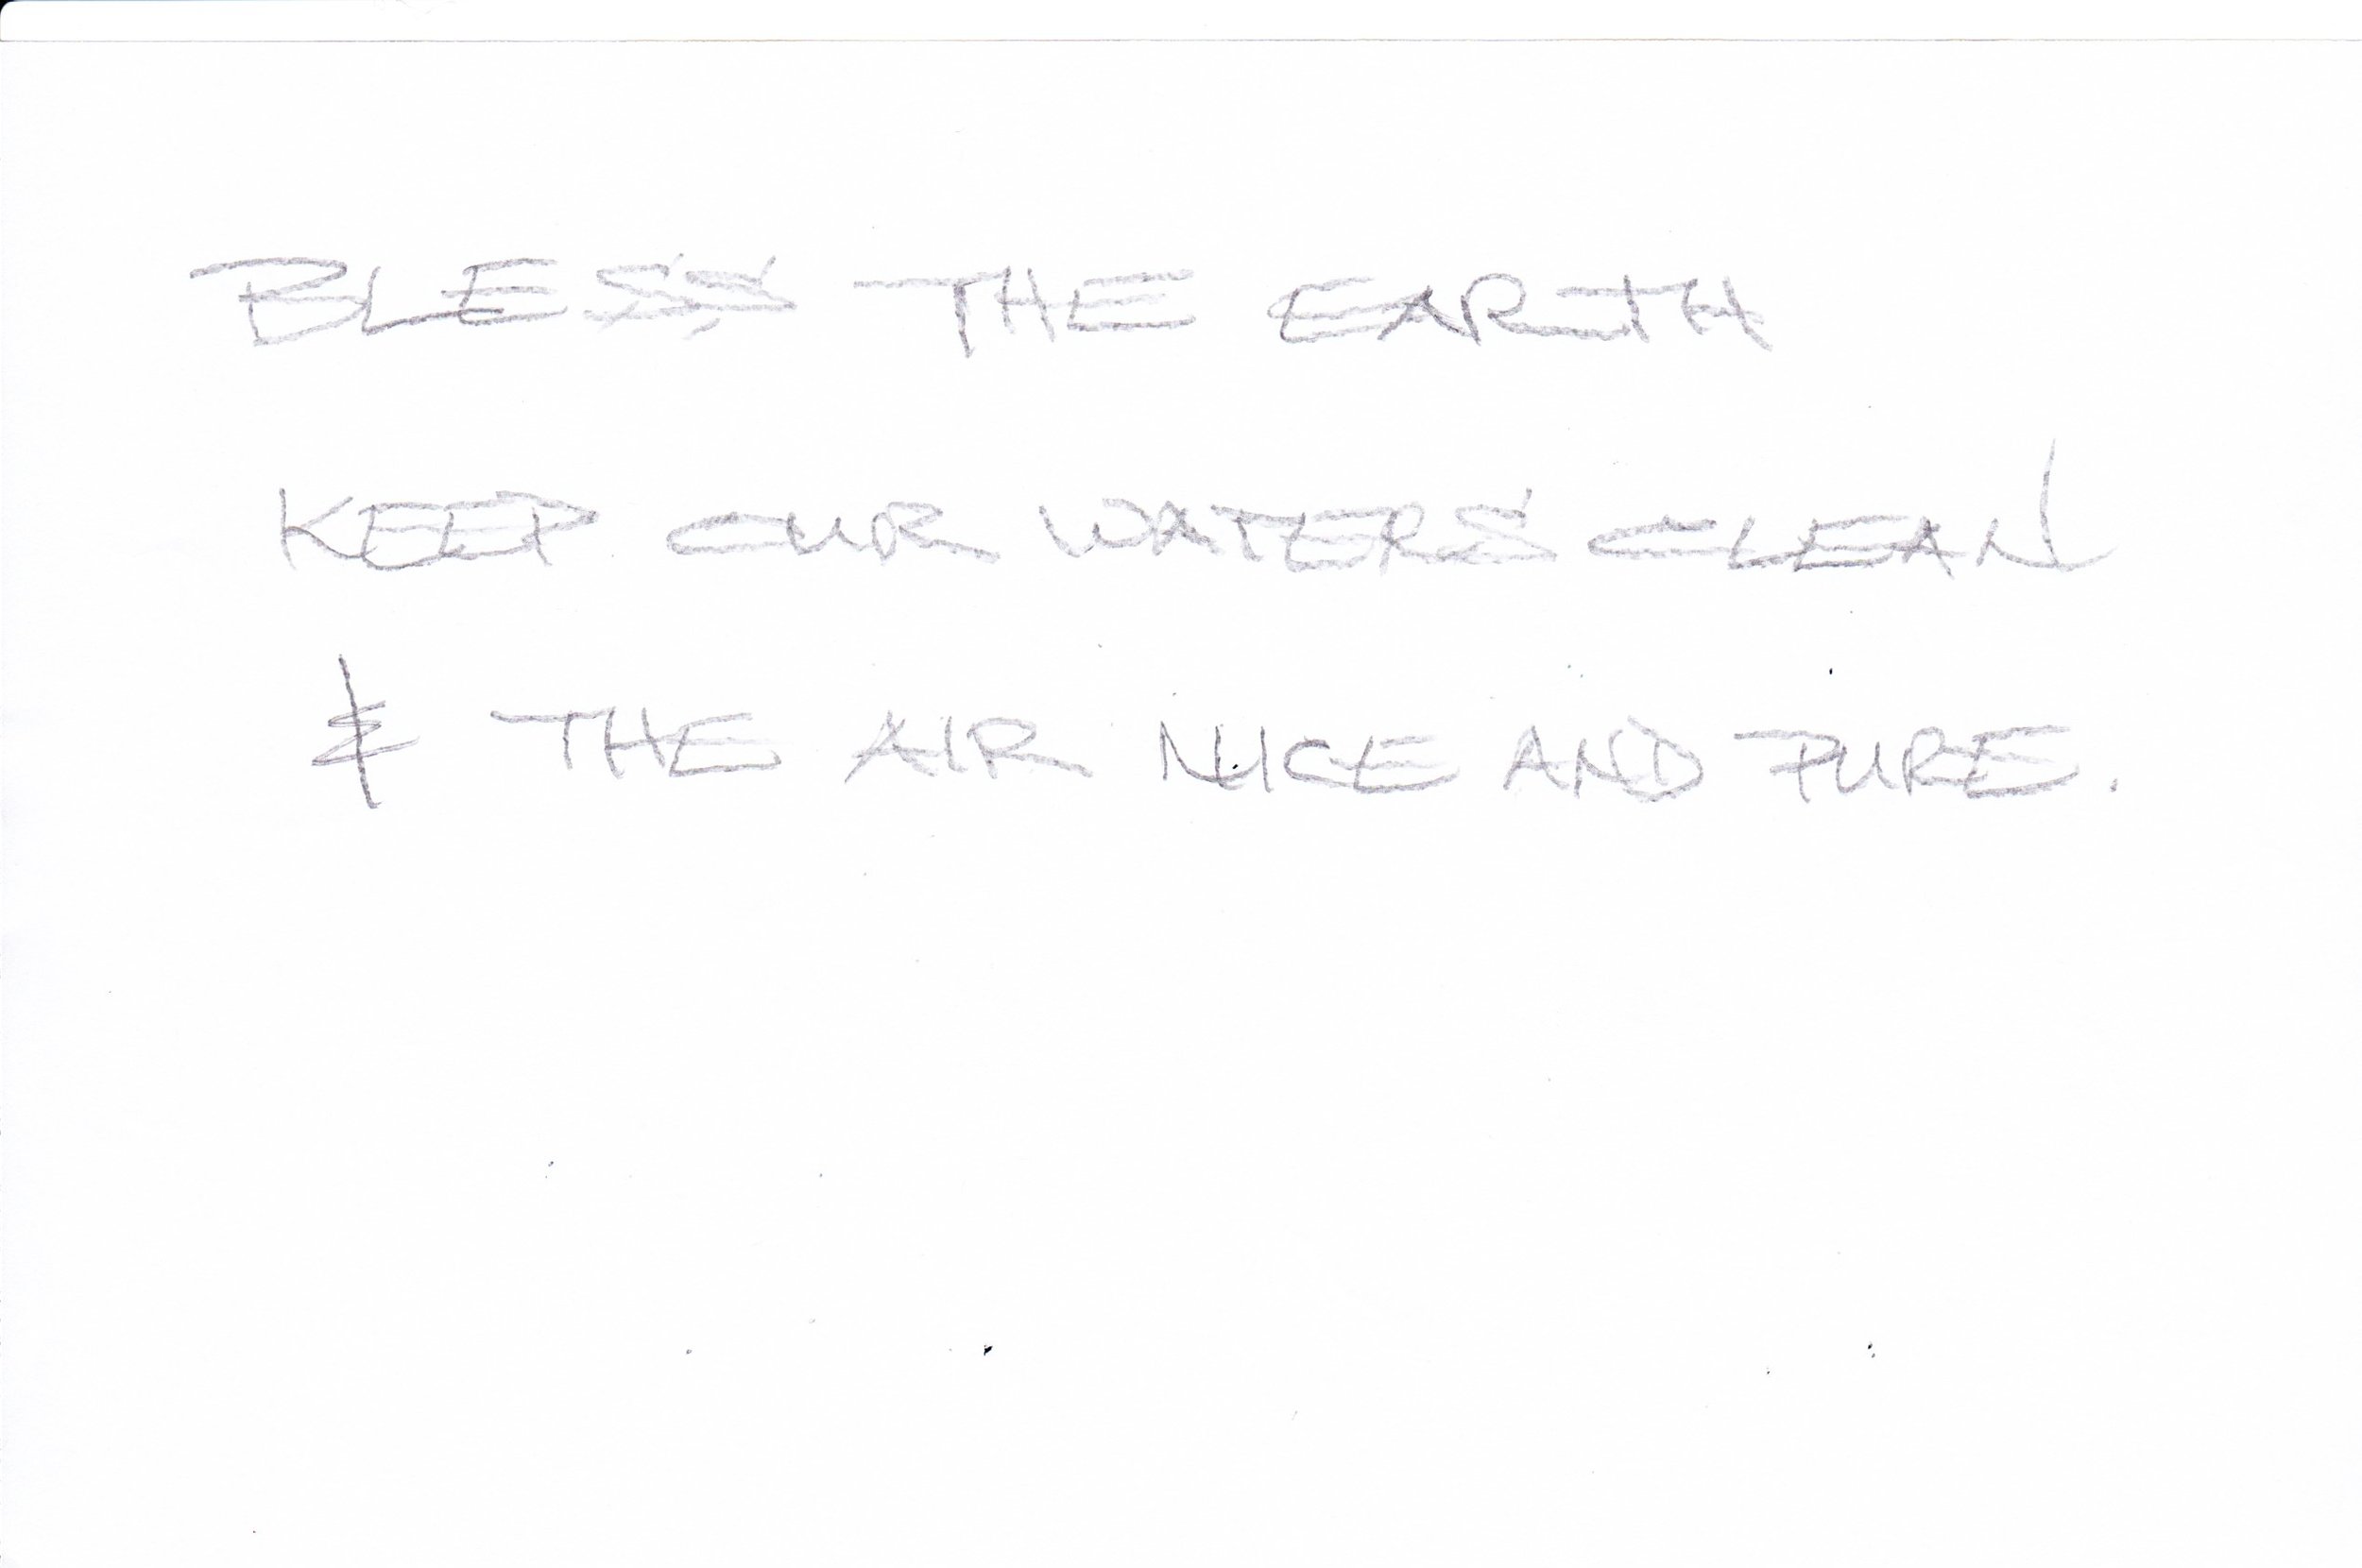 BLESS THE EARTH
KEEP OUR WATERS CLEAN
& THE AIR NICE AND PURE.